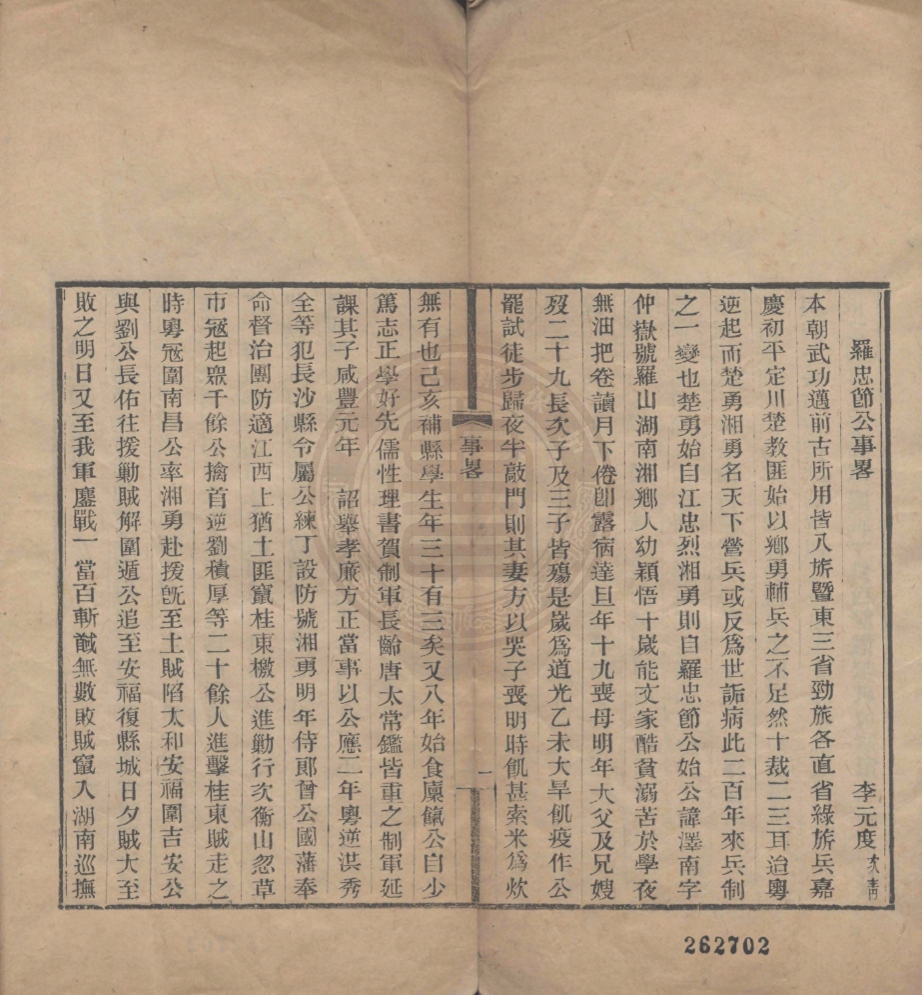 羅忠節公事畧
李元度 次青
本朝武功邁前古所用皆八旂暨東三省勁旅各直省綠旂兵嘉
慶初平定川楚教匪始以鄉勇輔兵之不足然十裁二三耳迨粵
逆起而楚勇湘勇名天下營兵或反爲世詬病此二百年來兵制
之一變也楚勇始自江忠烈湘勇則自羅忠節公始公諱澤南字
仲嶽號羅山湖南湘鄉人幼穎悟十歲能文家酷貧溺苦於學夜
無油把卷讀月下倦卽露宿達旦年十九喪母明年大父及兄嫂
歿二十九長次子及三子皆殤是歲爲道光乙未大旱飢疫作公
罷試徒步歸夜半敲門則其妻方以哭子喪明時飢甚索米爲炊
事畧
一
無有也己亥補縣學生年三十有三矣又八年始食廩餼公自少
篤志正學好先儒性理書賀制軍長齡唐太常鑑皆重之制軍延
課其子咸豐元年 詔舉孝廉方正當事以公應二年粵逆洪秀
全等犯長沙縣令屬公練丁設防號湘勇明年侍郎曾公國藩奉
命督治團防適江西上猶土匪竄桂東檄公進勦行次衡山忽草
市寇起眾千餘公擒首逆劉積厚等二十餘人進擊桂東賊走之
時粵寇圍南昌公率湘勇赴援旣至土賊陷太和安福圍吉安公
與劉公長佑往援勦賊解圍遁公追至安福復縣城日夕賊大至
敗之明日又至我軍鏖戰一當百斬馘無數敗賊竄入湖南巡撫
262702